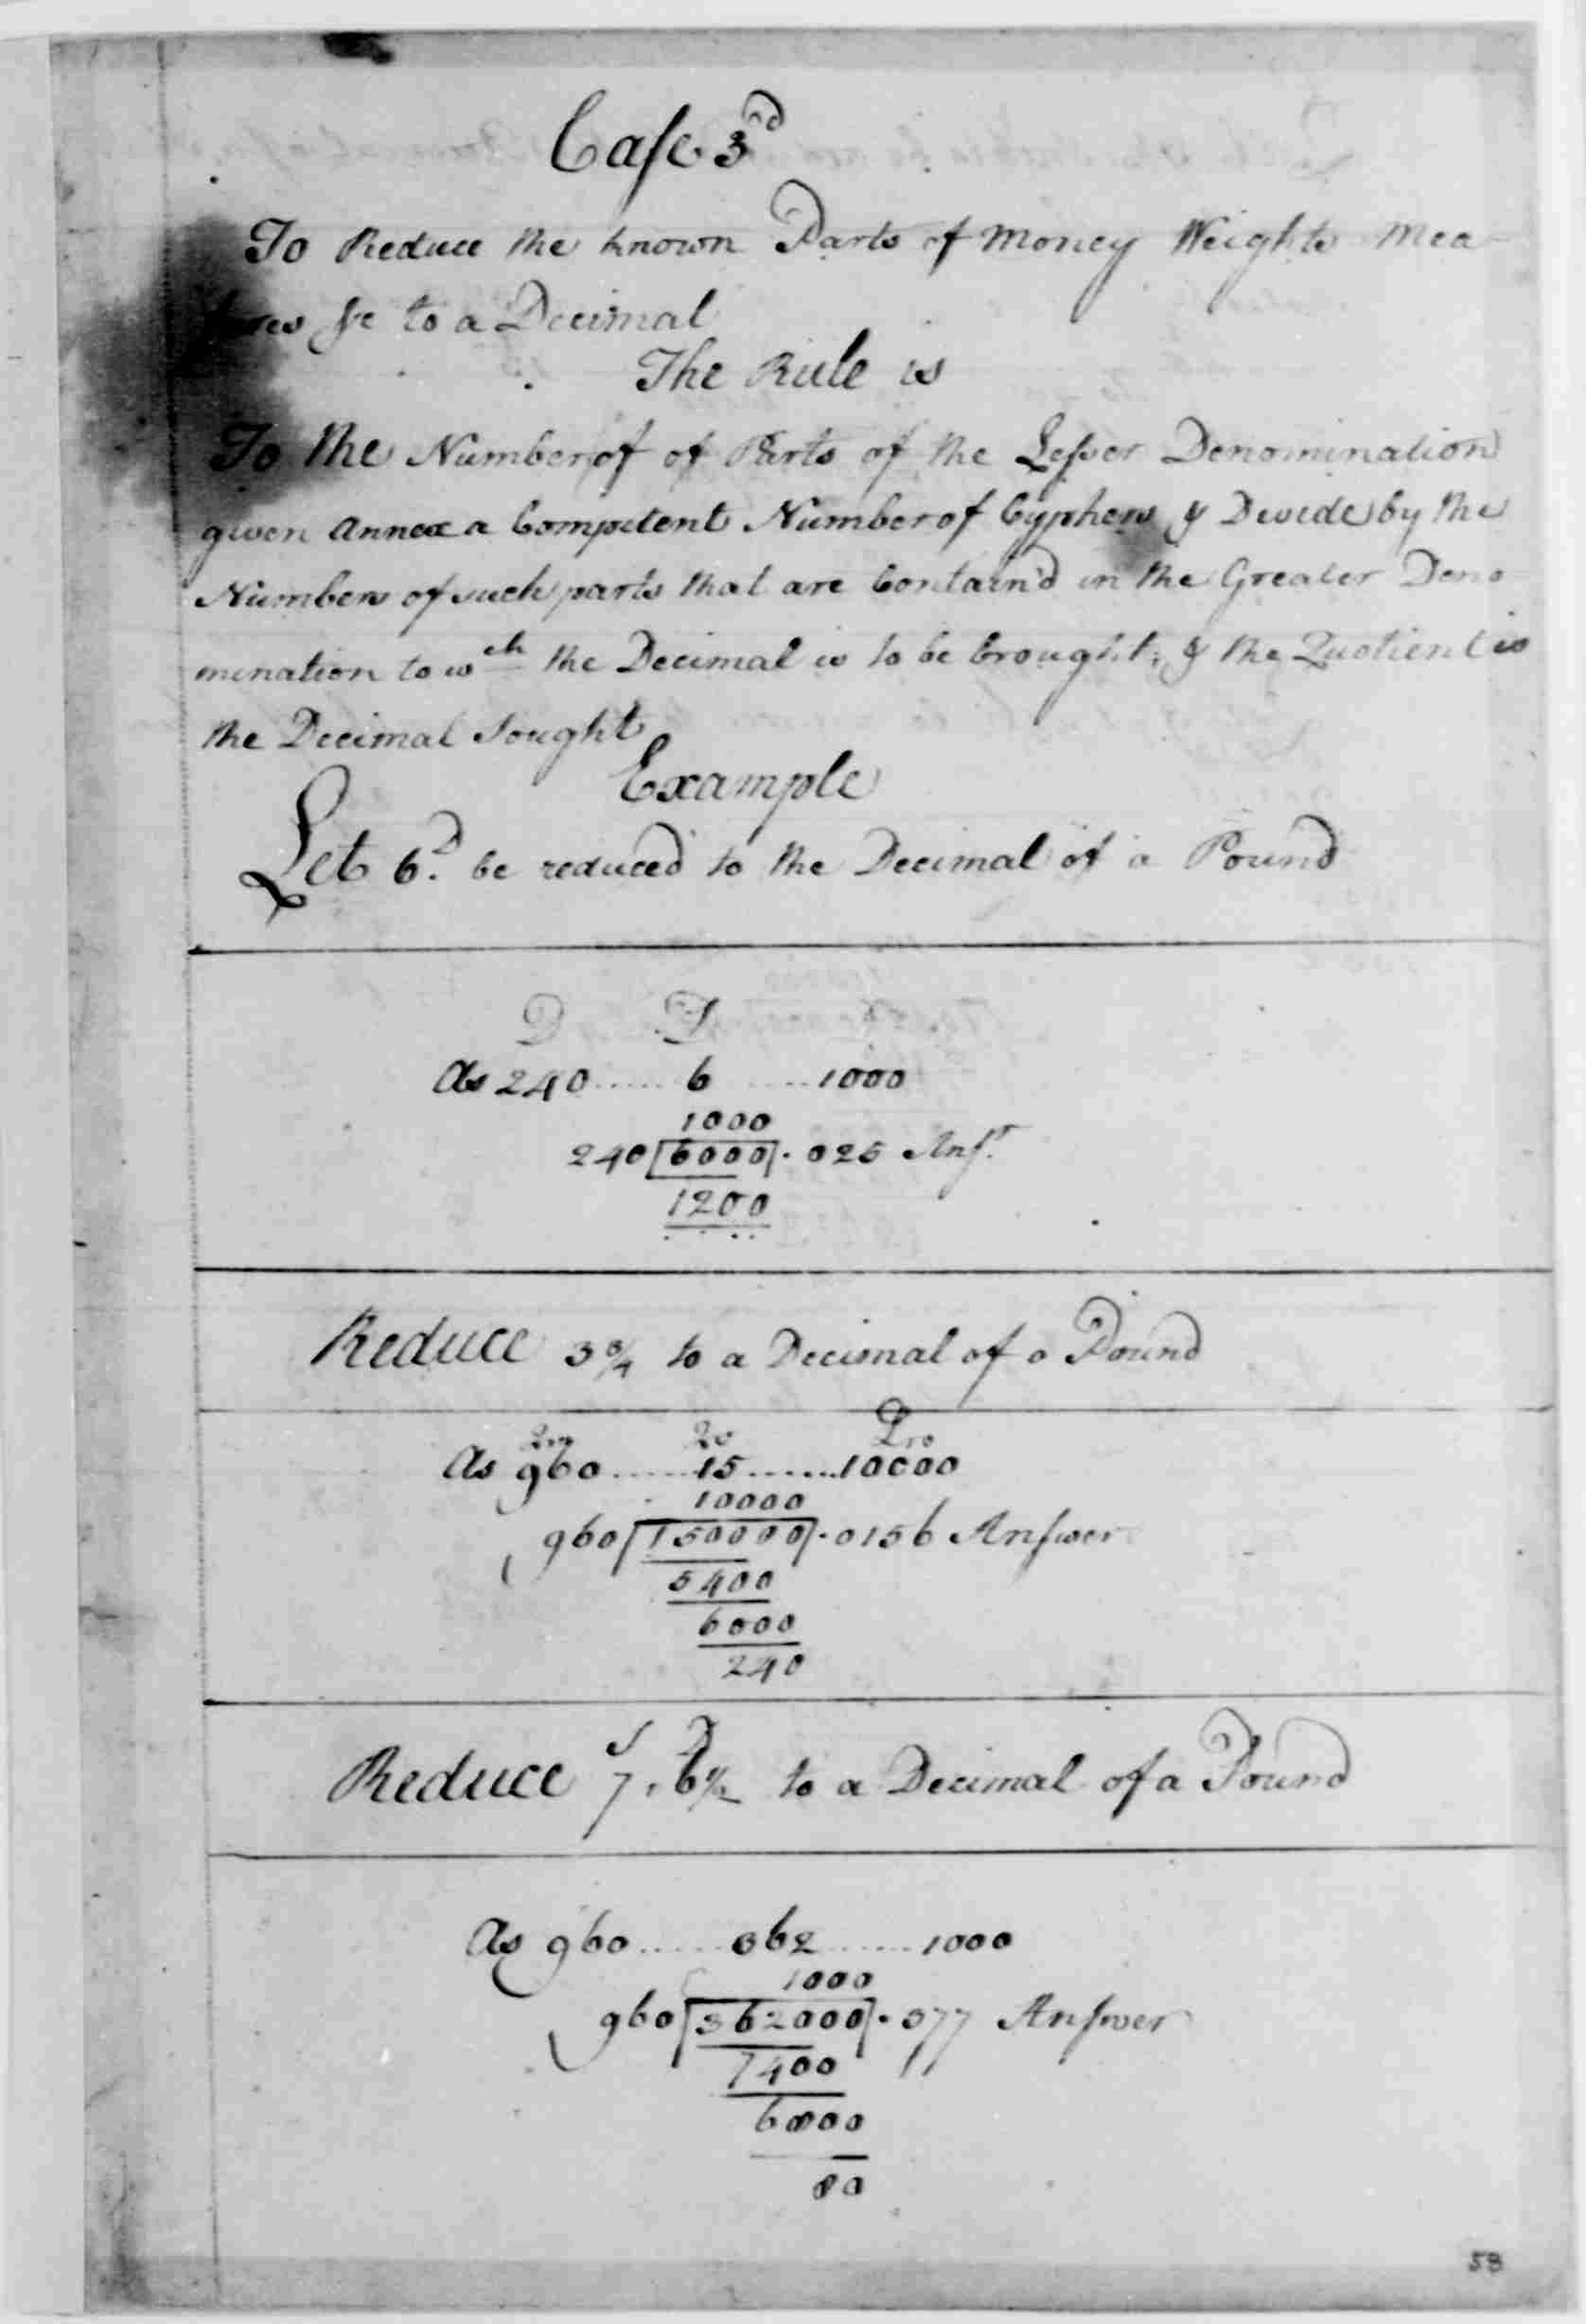 Case 3d
To Reduce the known Parts of Money Weights Mea
sures &c to a Decimal
The Rule is
To the Number of of Parts of the Lesser Denomination
given annex a Competent Number of Cyphers & Devide by the
Numbers of such parts that are Contain'd in the Greater Deno
mination to wch the Decimal is to be brought; & the Quotient is
the Decimal Sought
Example
Let 6.D be reduced to the Decimal of a Pound
D D
As 240 ..... 6 ..... 1000
1000
240 6000 .025 Ansr.
1200
Reduce 3 3/4 to a Decimal of a Pound
Qrs Qs Qrs
As 960 ..... 15 ...... 10000
10000
960 150000 .0156 Answer
5400
6000
240
S D
Reduce 7.6 1/2 to a Decimal of a Pound
As 960 ..... 362 ...... 1000
1000
960 362000 .377 Answer
7400
6800
80
58